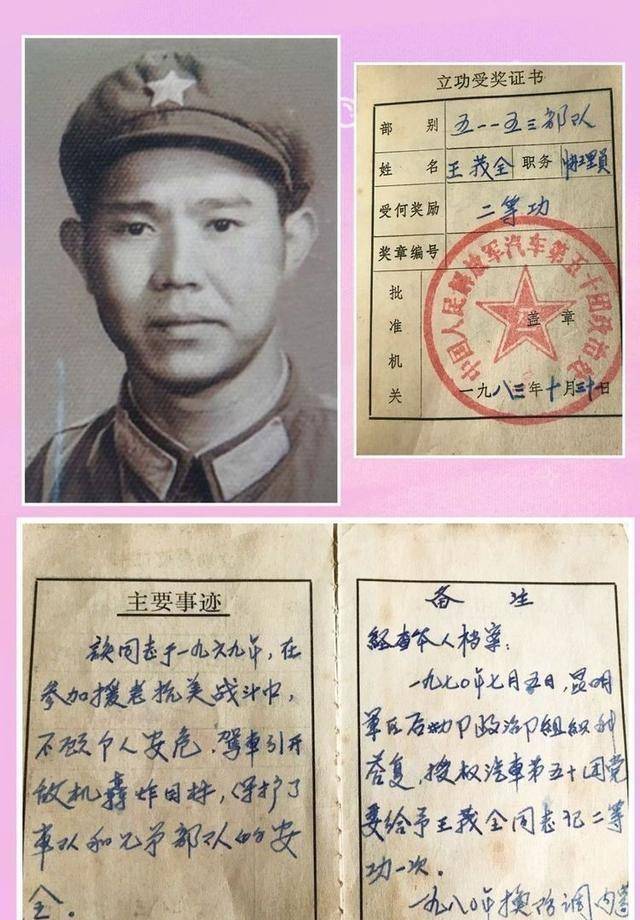 立功受奖证书
部别 五一一五三部队
姓名 王莪全 职务 协理員
受何奖励 二等功
奖章编号
批准机关
中国人民解放军汽车第五十团政治处
盖章
一九八三年十月三十日
主要事迹
该同志于一九六九年,在
参加援老抗美战斗中,
不顾个人安危,驾車引开
敌机轰炸目标,保护了
車队和兄弟部队的安
全。
备注
经查本人档案:
一九七〇年七月五日,昆明
軍区后勤卩政治卩组织科
答复,授权汽車第五十团党
委给予王莪全同志记二等
功一次。
一九八〇年換